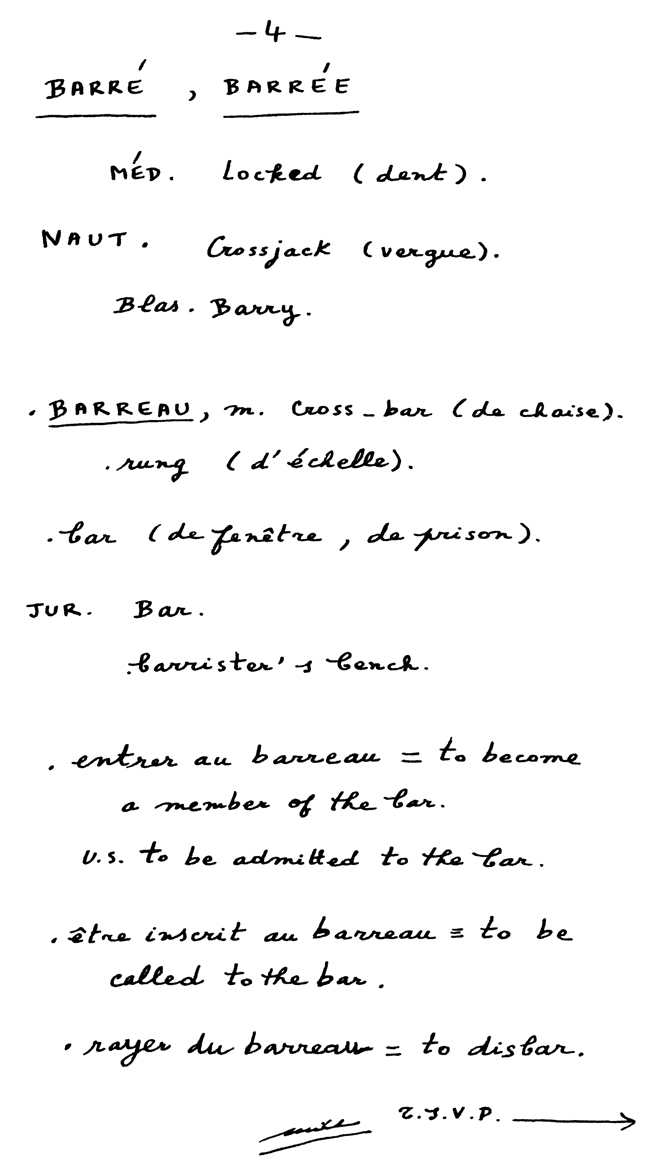 — 4 —
BARRÉ, BARRÉE
MÉD. Locked (dent).
NAUT. Crossjack (vergue).
Blas. Barry.
. BARREAU, m. Cross-bar (de chaise).
. rung (d'échelle).
. bar (de fenêtre, de prison).
JUR. Bar.
. barrister's bench.
. entrer au barreau = to become
a member of the bar.
U.S. to be admitted to the bar.
. être inscrit au barreau = to be
called to the bar.
. rayer du barreau = to disbar.
suite T.S.V.P. →